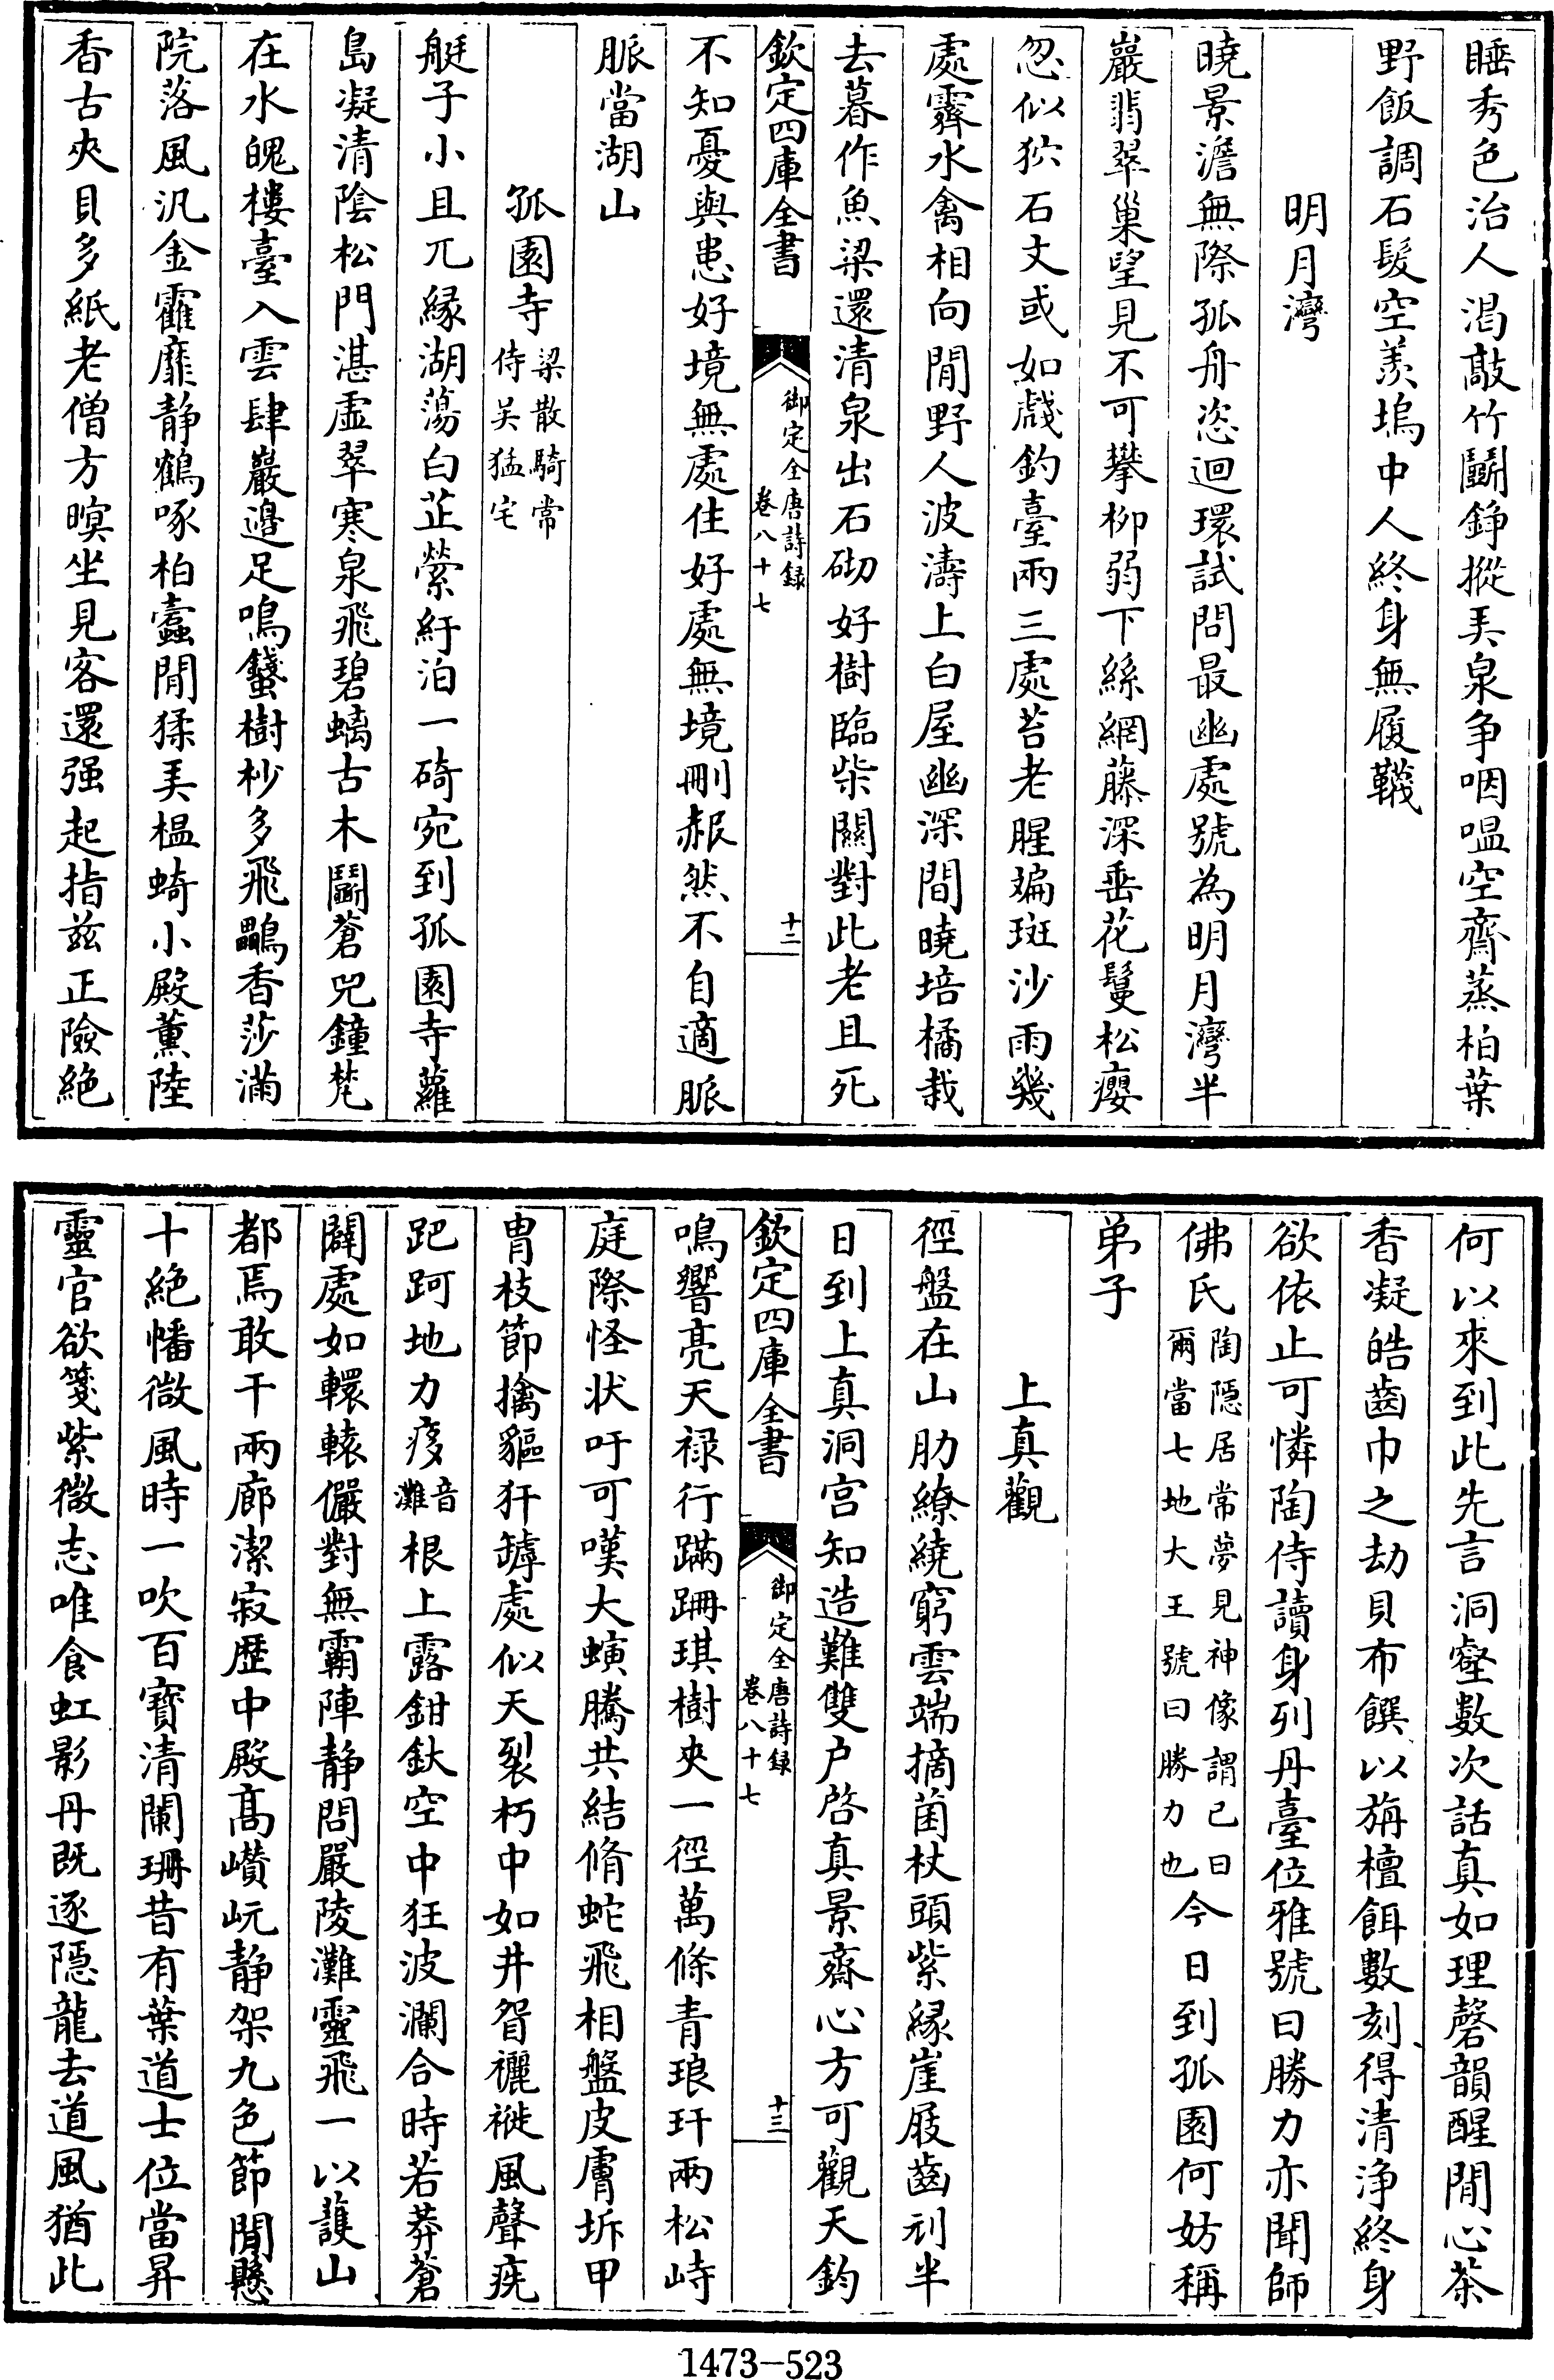 睡秀色治人渴敲竹鬭錚摐弄泉争咽嗢空齋蒸柏葉
野飯調石髮空羨塢中人終身無履韈
明月灣
曉景澹無際孤舟恣迴環試問最幽處號為明月灣半
巖翡翠巢望見不可攀柳弱下絲網藤深垂花鬘松癭
忽似狖石文或如戲釣臺兩三處苔老腥斒斑沙雨幾
處霽水禽相向閒野人波濤上白屋幽深間曉培橘栽
去暮作魚梁還清泉出石砌好樹臨柴關對此老且死
欽定四庫全書
御定全唐詩録
卷八十七
十二
不知憂與患好境無處住好處無境刪赧然不自適脈
脈當湖山
孤園寺
梁散騎常
侍吴猛宅
艇子小且兀緣湖蕩白芷縈紆泊一碕宛到孤園寺蘿
島凝清陰松門湛虛翠寒泉飛碧螭古木鬭蒼兕鐘梵
在水魄樓臺入雲肆巖邊足鳴蠽樹杪多飛鸓香莎滿
院落風汎金靃靡静鶴啄柏蠹閒猱弄榅𣖕小殿薰陸
香古夾貝多紙老僧方瞑坐見客還强起指兹正險絶
何以來到此先言洞壑數次話真如理磬韻醒閒心茶
香凝皓齒巾之劫貝布饌以旃檀餌數刻得清浄終身
欲依止可憐陶侍讀身列丹臺位雅號曰勝力亦聞師
佛氏
陶隱居常夢見神像謂已曰
爾當七地大王號曰勝力也
今日到孤園何妨稱
弟子
上真觀
徑盤在山肋繚繞窮雲端摘菌杖頭紫緣崖屐齒刓半
日到上真洞宫知造難雙户啓真景齋心方可觀天鈞
欽定四庫全書
御定全唐詩録
卷八十七
十三
鳴響亮天禄行蹣跚琪樹夾一徑萬條青琅玕兩松峙
庭際怪状吁可嘆大螾騰共結脩蛇飛相盤皮膚坼甲
胄枝節擒貙犴罅處似天裂朽中如井眢襹褷風聲疣
跁跒地力㾋
音
灘
根上露鉗釱空中狂波瀾合時若莽蒼
闢處如轘轅儼對無霸陣静問嚴陵灘靈飛一以護山
都焉敢干兩廊潔寂歷中殿髙巑岏静架九色節閒懸
十絶幡微風時一吹百寶清闌珊昔有葉道士位當昇
靈官欲箋紫微志唯食虹影丹既逐隱龍去道風猶此
1473-523